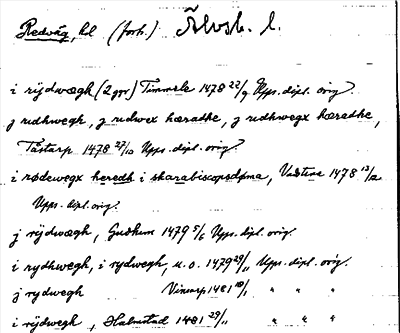 Redväg, hd (forts.) Älvsb. l.
i rijdwægh (2 ggr) Timmele 1478 22/9 Upps. dipl. orig.
j rudhwegh, j rudwex hæradhe, j rudhwegx hæradhe,
Tåstarp 1478 27/10 Upps. dipl. orig.
i rødewegx heredh i skarabiscopsdøme, Vadstena 1478 13/12
Upps. dipl. orig.
j rijdwægh, Gudhem 1479 5/6 Upps. dipl. orig.
i rydhwegh, i rydwegh, u. o. 1479 29/11 Upps. dipl. orig.
j rydwegh Vinsarp 1481 18/1 " " "
i rijdwegh, Halmstad 1481 29/11 " " "